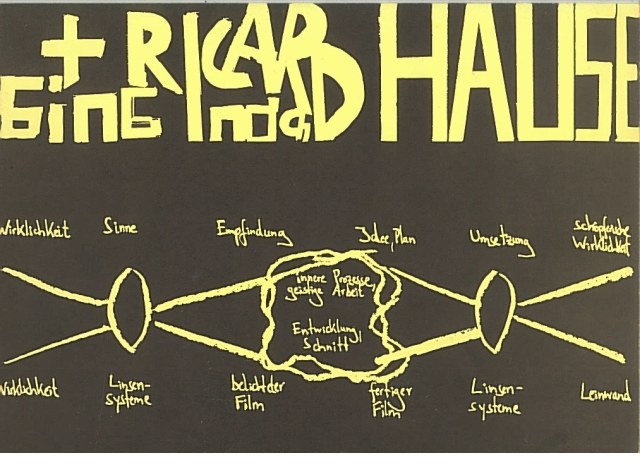 + RICARD HAUSE
GinG nach
Wirklichkeit Sinne Empfindung Idee, Plan Umsetzung schöpferische
Wirklichkeit
innere Prozesse,
geistige Arbeit
Entwicklung,
Schnitt
Wirklichkeit Linsen-
systeme belichteter
Film fertiger
Film Linsen-
systeme Leinwand